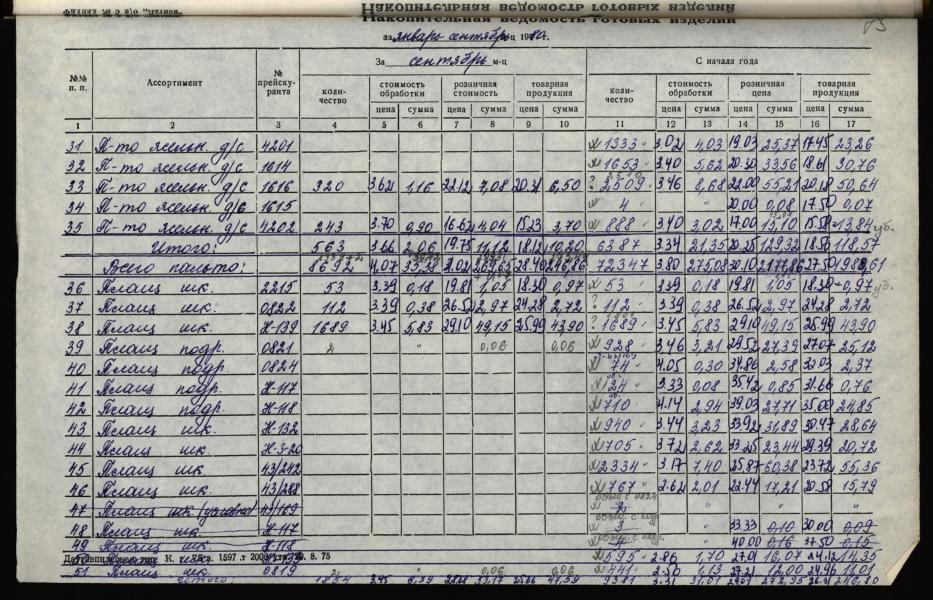 Накопительная ведомость готовых изделий
Накопительная ведомость готовых изделий
за январь-сентябрь 1980г.
За сентябрь м-ц С начала года
№№ п. п. Ассортимент № прейскуранта количество стоимость обработки розничная стоимость товарная продукция количество стоимость обработки розничная цена товарная продукция
цена сумма цена сумма цена сумма цена сумма цена сумма цена сумма
1 2 3 4 5 6 7 8 9 10 11 12 13 14 15 16 17
31 П-то ясельн. д/с 4201 1333 3.02 4,03 19.03 25,37 17.45 23,26
32 П-то ясельн. д/с 1614 1653 3.40 5,62 20.30 33,56 18.61 30,76
33 П-то ясельн. д/с 1616 320 3.62 1,16 22.12 7,08 20.31 6,50 2509 3.46 8,68 22.00 55,21 20.18 50,64
34 П-то ясельн. д/в 1615 4 " 20.00 0,08 17.50 0,07
35 П-то ясельн. д/с 4202 243 3.70 0,90 16.62 4,04 15.23 3,70 888 3.40 3,02 17.00 15,10 15.59 13,84 уб.
Итого: 563 3.66 2,06 19.75 11,12 18.12 10,20 6387 3.34 21,35 20.25 129,32 18.56 118,57
Всего пальто: 8692 4,07 28.40 72347 3.80 275,08 30.10
36 Плащ шк. 2215 53 3.39 0,18 19.81 1,05 18.30 0,97 53 3.39 0,18 19.81 1,05 18.30 0,97 уб.
37 Плащ шк. 0822 112 3.39 0,38 26.52 2,97 24.28 2,72 112 3.39 0,38 26.52 2,97 24.28 2,72
38 Плащ шк. Н-139 1689 3.45 5,83 29.10 49,15 25.99 43,90 1689 3.45 5,83 29.10 49,15 25.99 43,90
39 Плащ подр. 0821 2 " 0,06 0,06 928 3.46 3,21 29.52 27,39 27.07 25,12
40 Плащ подр. 0824 74 4.05 0,30 34.86 2,58 32.03 2,37
41 Плащ подр. Н-117 24 3.33 0,08 35.42 0,85 31.66 0,76
42 Плащ подр. Н-118 710 4.14 2,94 39.03 27,71 35.00 24,85
43 Плащ шк. Н-132 940 3.44 3,23 33.92 31,89 30.47 28,64
44 Плащ шк. Н-3-20 705 3.72 2,62 33.25 23,44 29.39 20,72
45 Плащ шк. 43/242 2334 3.17 7,40 25.87 60,38 23.72 55,36
46 Плащ шк. 43/288 767 2.62 2,01 22.44 17,21 20.58 15,79
47 Плащ шк. 43/169 2
48 Плащ шк. Н-117 3 " 33.33 0,10 30.00 0,09
49 Плащ шк. Н-118 " 40.00 0,16 37.50 0,15
595 2.86 1,70 27.01 16,07 24.12 14,35
51 Плащ шк. 0819 2 " 0,06 0,06 441 2.56 1,13 27.21 12,00 24.96 11,01
Итого 1854 3.45 6,39 28.68 53,17